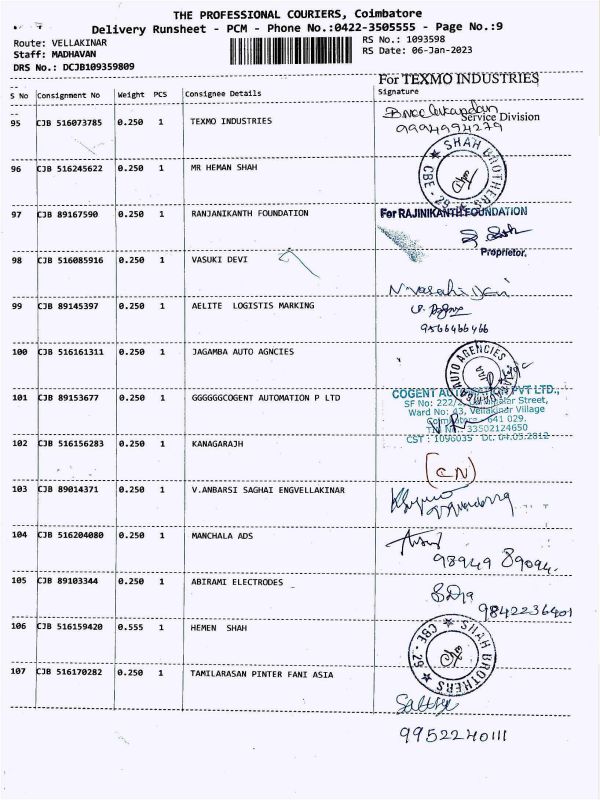 THE PROFESSIONAL COURIERS, Coimbatore
Delivery Runsheet - PCM - Phone No.:0422-3505555 - Page No.:9
Route: VELLAKINAR
RS No.: 1093598
Staff: MADHAVAN
RS Date: 06-Jan-2023
DRS No.: DCJB109359809
For TEXMO INDUSTRIES
S No Consignment No Weight PCS Consignee Details Signature
95 CJB 516073785 0.250 1 TEXMO INDUSTRIES
Service Division
9994994279
96 CJB 516245622 0.250 1 MR HEMAN SHAH
★ SHAH BROTHERS ★ CBE - 29
97 CJB 89167590 0.250 1 RANJANIKANTH FOUNDATION
For RAJINIKANTH FOUNDATION
Proprietor.
98 CJB 516085916 0.250 1 VASUKI DEVI
99 CJB 89145397 0.250 1 AELITE LOGISTIS MARKING
9566466466
100 CJB 516161311 0.250 1 JAGAMBA AUTO AGNCIES
AUTO AGENCIES
101 CJB 89153677 0.250 1 GGGGGGCOGENT AUTOMATION P LTD
COGENT AUTOMATION PVT LTD.,
SF No: 222/2, Street,
Ward No: 43, Vellakinar Village
Coimbatore - 641 029.
TN No: 33502124650
CST : 1096035 Dt. 04.05.2012
102 CJB 516156283 0.250 1 KANAGARAJH
(CN)
103 CJB 89014371 0.250 1 V.ANBARSI SAGHAI ENGVELLAKINAR
104 CJB 516204080 0.250 1 MANCHALA ADS
98949 89094.
105 CJB 89103344 0.250 1 ABIRAMI ELECTRODES
9842236401
106 CJB 516159420 0.555 1 HEMEN SHAH
★ SHAH BROTHERS ★ CBE - 29
107 CJB 516170282 0.250 1 TAMILARASAN PINTER FANI ASIA
9952240111